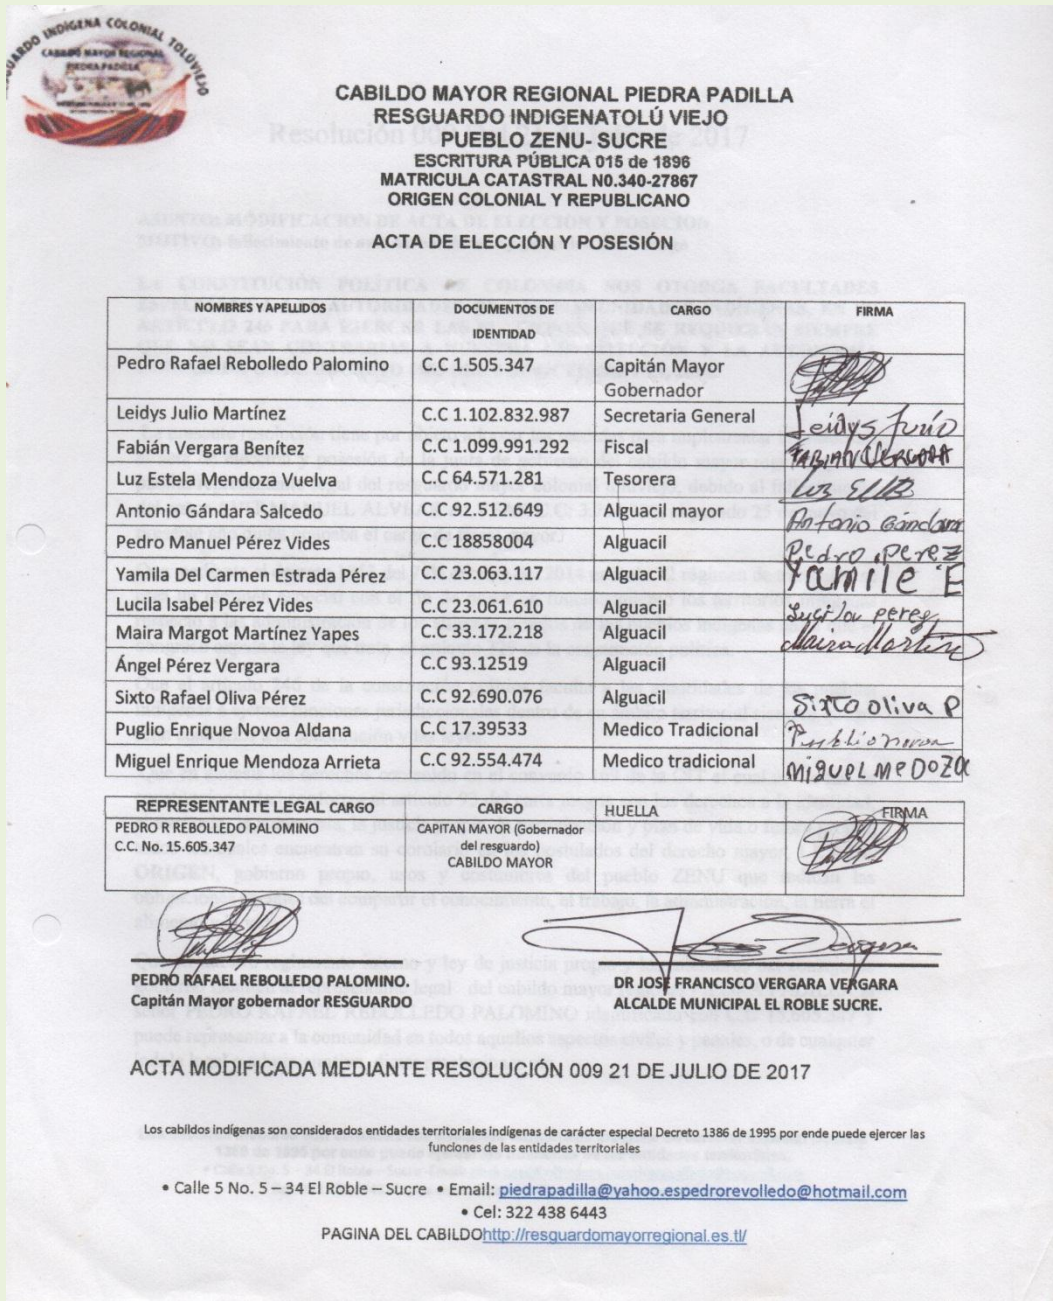 RESGUARDO INDIGENA COLONIAL TOLUVIEJO
CABILDO MAYOR REGIONAL
PIEDRA PADILLA
CABILDO MAYOR REGIONAL PIEDRA PADILLA
RESGUARDO INDIGENATOLÚ VIEJO
PUEBLO ZENU- SUCRE
ESCRITURA PÚBLICA 015 de 1896
MATRICULA CATASTRAL N0.340-27867
ORIGEN COLONIAL Y REPUBLICANO
ACTA DE ELECCIÓN Y POSESIÓN
NOMBRES Y APELLIDOS DOCUMENTOS DE IDENTIDAD CARGO FIRMA
Pedro Rafael Rebolledo Palomino C.C 1.505.347 Capitán Mayor Gobernador
Leidys Julio Martínez C.C 1.102.832.987 Secretaria General Leidys Julio
Fabián Vergara Benítez C.C 1.099.991.292 Fiscal FABIAN VERGARA
Luz Estela Mendoza Vuelva C.C 64.571.281 Tesorera Luz
Antonio Gándara Salcedo C.C 92.512.649 Alguacil mayor Antonio Gándara
Pedro Manuel Pérez Vides C.C 18858004 Alguacil Pedro Perez
Yamila Del Carmen Estrada Pérez C.C 23.063.117 Alguacil Yamile E
Lucila Isabel Pérez Vides C.C 23.061.610 Alguacil Lucila perez
Maira Margot Martínez Yapes C.C 33.172.218 Alguacil Maira Martinez
Ángel Pérez Vergara C.C 93.12519 Alguacil
Sixto Rafael Oliva Pérez C.C 92.690.076 Alguacil Sixto Oliva P
Puglio Enrique Novoa Aldana C.C 17.39533 Medico Tradicional
Miguel Enrique Mendoza Arrieta C.C 92.554.474 Medico tradicional MiguEL MeDOZA
REPRESENTANTE LEGAL CARGO CARGO HUELLA FIRMA
PEDRO R REBOLLEDO PALOMINO CAPITAN MAYOR (Gobernador
C.C. No. 15.605.347 del resguardo)
CABILDO MAYOR
PEDRO RAFAEL REBOLLEDO PALOMINO. DR JOSE FRANCISCO VERGARA VERGARA
Capitán Mayor gobernador RESGUARDO ALCALDE MUNICIPAL EL ROBLE SUCRE.
ACTA MODIFICADA MEDIANTE RESOLUCIÓN 009 21 DE JULIO DE 2017
Los cabildos indígenas son considerados entidades territoriales indígenas de carácter especial Decreto 1386 de 1995 por ende puede ejercer las
funciones de las entidades territoriales
• Calle 5 No. 5 – 34 El Roble – Sucre • Email: piedrapadilla@yahoo.espedrorevolledo@hotmail.com
• Cel: 322 438 6443
PAGINA DEL CABILDOhttp://resguardomayorregional.es.tl/